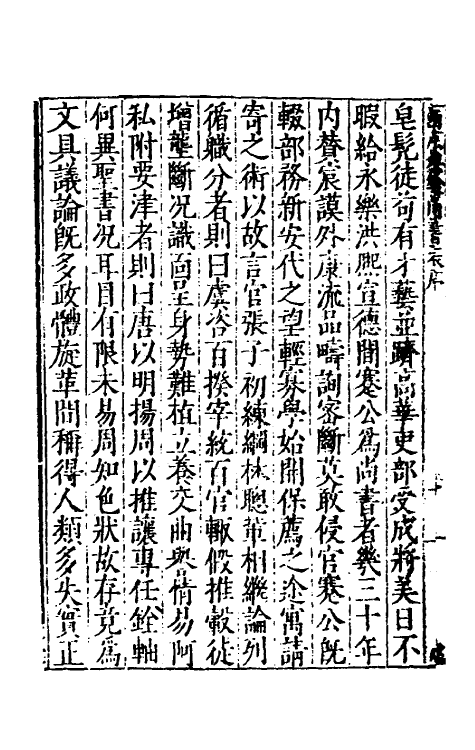 皂髡徒苟有才藝並躋高華吏部受成將美日不
暇給永樂洪熙宣德間蹇公爲尚書者幾三十年
内替宸謨外康流品疇詢密斷莫敢侵官蹇公旣
輟部務新安代之望輕寡學始開保薦之途寓請
寄之術以故言官張子初練綱林聰輩相繼論列
循職分者則曰虞咨百揆宰統百官輙假推轂徒
增壟斷况識面呈身勢難植立養交曲與情易阿
私附要津者則曰唐以明揚周以推讓專任銓軸
何異聖書况耳目有限未易周知色狀故存竟爲
文具議論旣多政體旋革間稱得人類多失實正